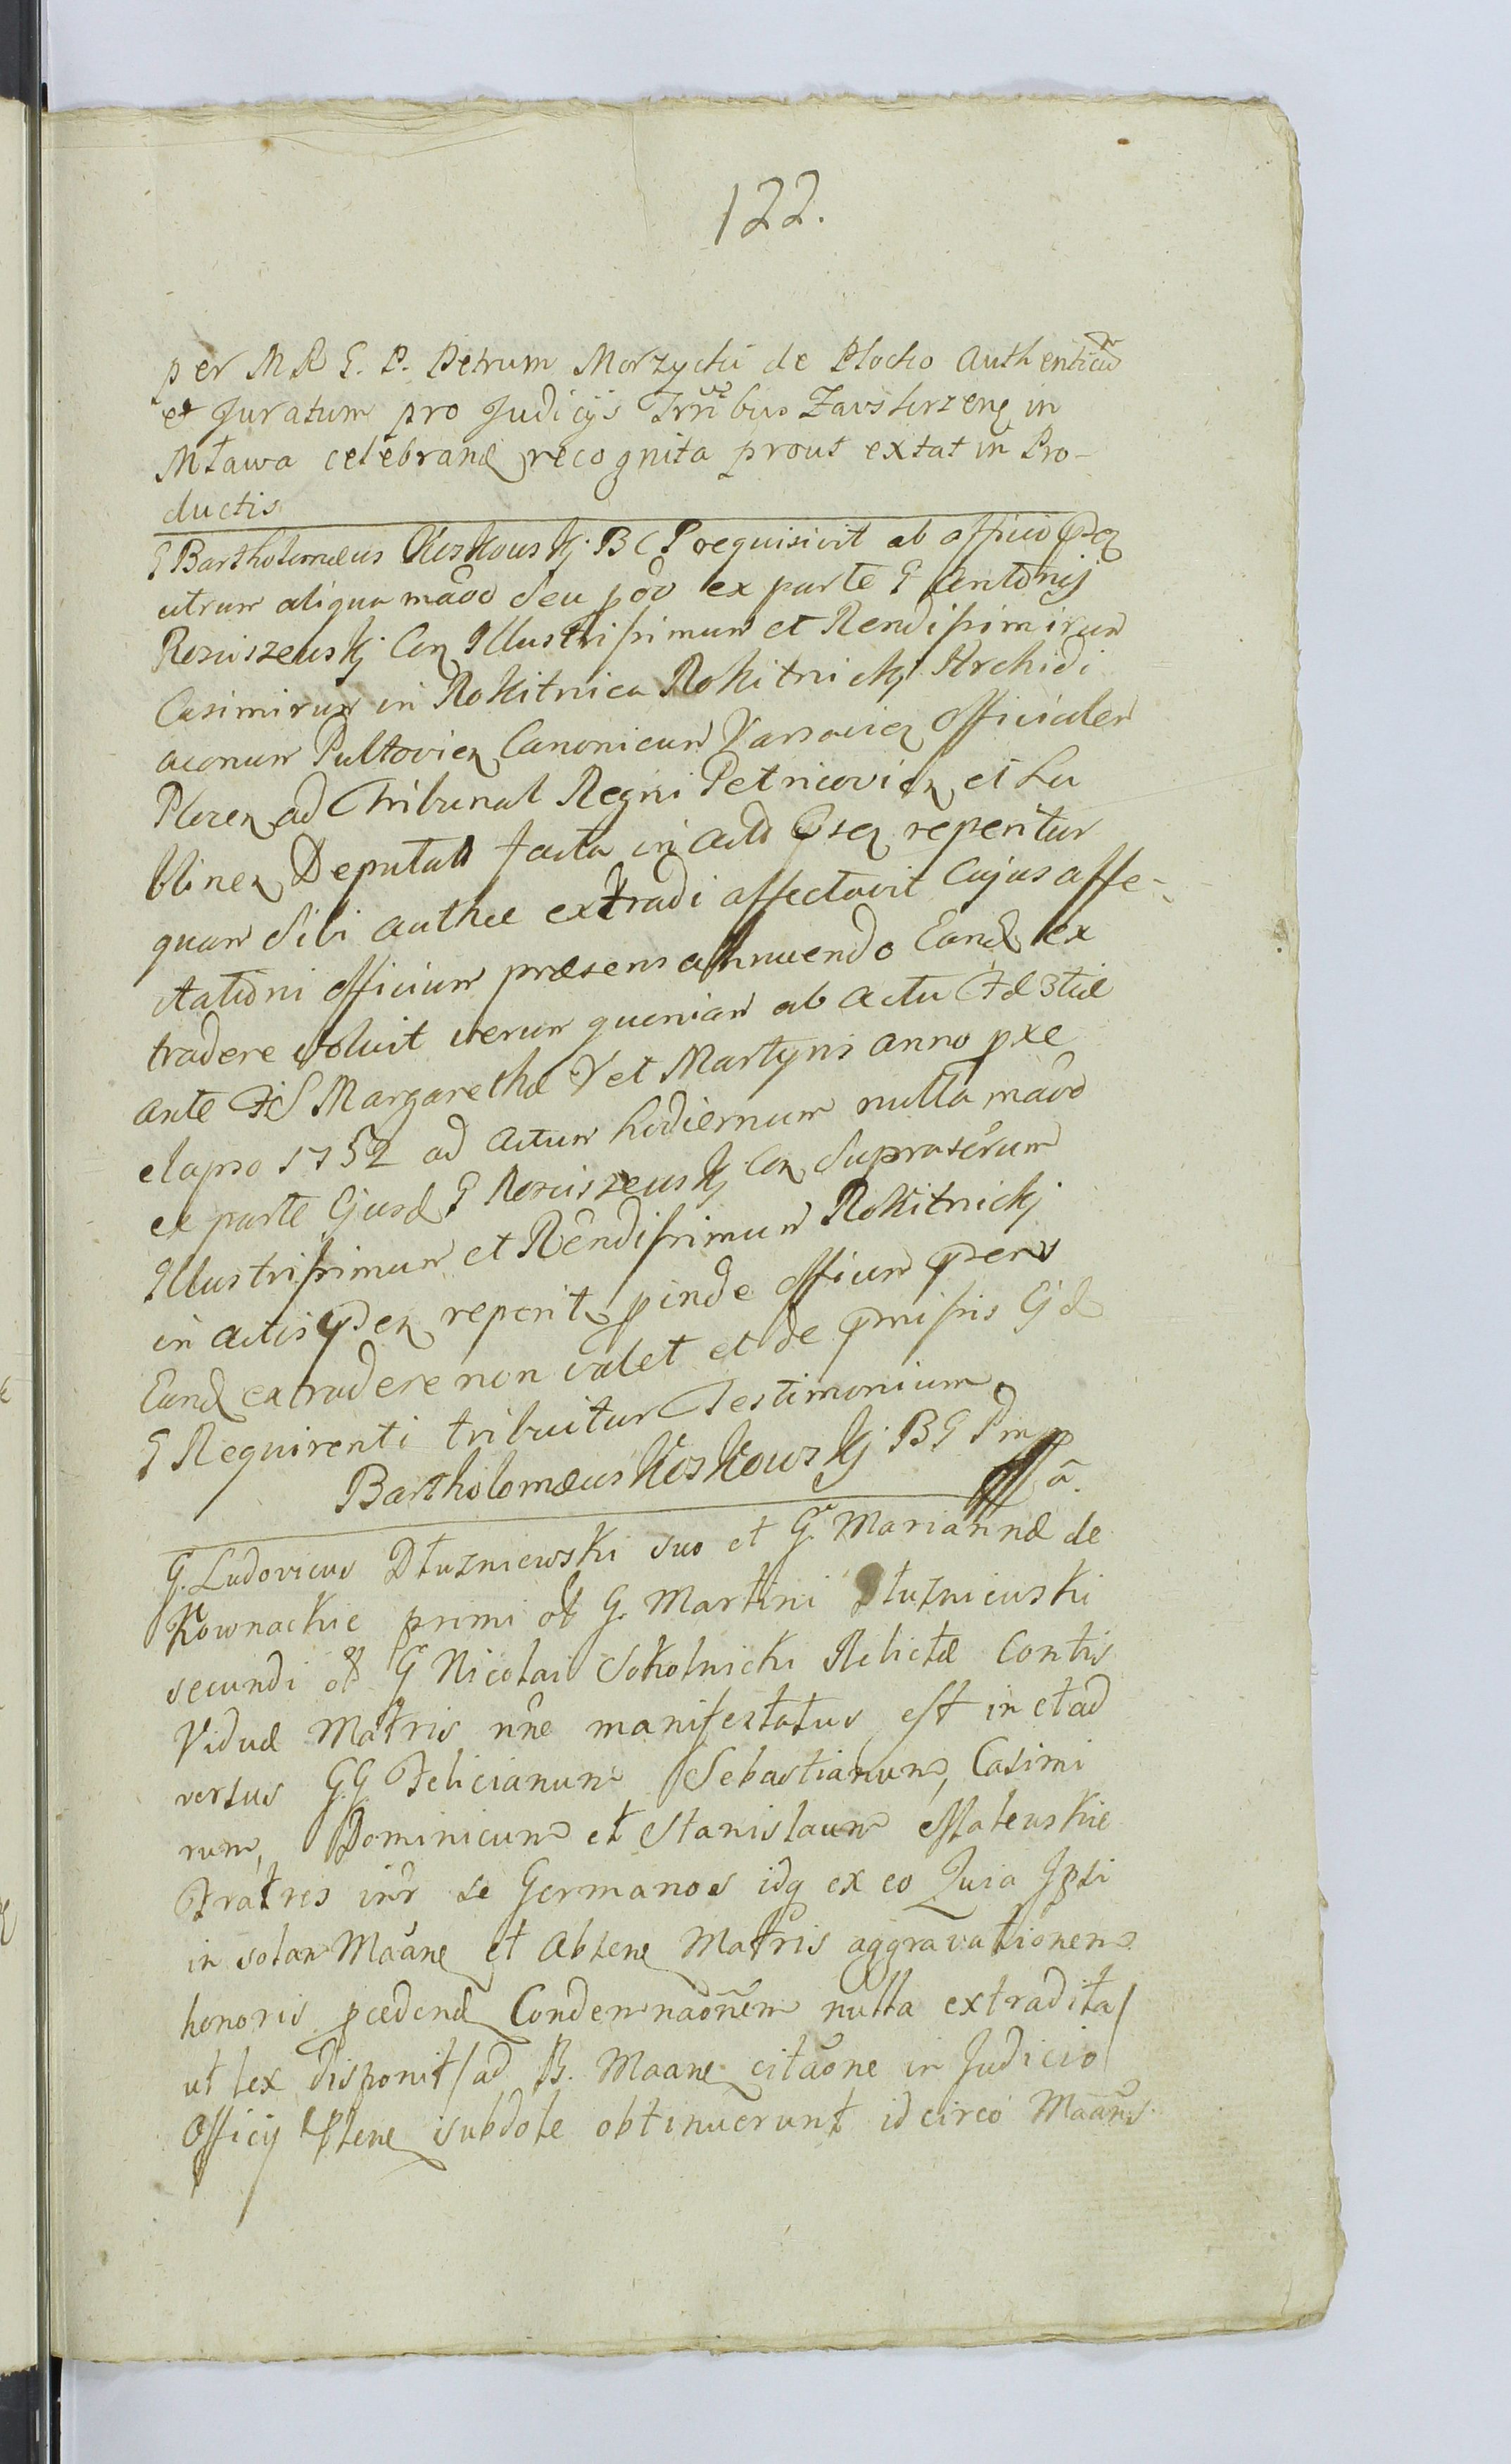 122.
per M R G. P. Petrum Morzycki de Plocko Authenticũ
et Juratum pro Judicijs Trrĩbus Zawskrzeñ in
Mława celebranđ recognita prout extat in Pro-
ductis
G Bartholomæus Koskowskj B C P requisivit ab officio
utrum aliqua mãõ seu põõ ex parte G Antonij
Rosciszewskj Con Illustrissimum et Rendissimum
Casimirum in Rokitnica Rokitnickj Archidi
aconum Pultovien Canonicum Varsavien Officialem
Plocen ad Tribunal Regni Petricovien et Lu
blinen Deputatũ facta in actis reperitur
quam sibi authce extradi affectavit Cujus affe-
ctationi officium præsens annuendo Eand ex
tradere voluit verum quoniam ab actu
ante F S Margarethæ V et Martyris anno pxe
elapso 1752 ad actum hodiernum nulla mãõ
ex parte Ejusd G Rosciszewskj Con Suprascrum
Illustrissimum et Rendissimum Rokitnickj
in actis reperit proinde officium præns
Eand extradere non valet et de præmissis Ejd
G Requirenti tribuitur Testimonium
Bartholomæus Koskowskj B G P mp
G. Ludovicus Dłuzniewski suo et Gæ Mariannæ de
Kownackie primi olt G. Martini Dłuzniewski
secundi olt Gr Nicolai Sokolnicki Relictæ Contis
Viduæ Matris nne manifestatus est in et ad
versus G.G. Felicianum Sebastianum, Casimi
rum, Dominicum et Stanislaum Mateuskie
Fratres intr se Germanos idq ex eo Quia Ipsi
in solam Maane et Absene Matris aggravationem
honoris pcedend Condemnaõnem nulla extradita /
ut lex disponit / ad B. Maane citaõne in Judicio
Officij Plcne subdole obtinuerunt idcirco Maans